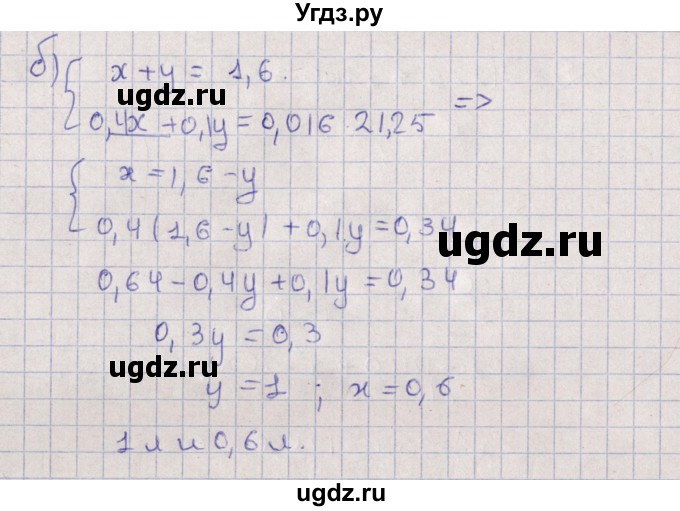 Угдз.ру
б) { x + y = 1,6.
ugdz.ru
0,4x + 0,1y = 0,016 21,25 =>
{ x = 1,6 - y
0,4(1,6 - y) + 0,1y = 0,34
ugdz.ru
0,64 - 0,4y + 0,1y = 0,34
0,3y = 0,3
ugdz.ru
y = 1 ; x = 0,6
1 л и 0,6 л.
ugdz.ru
ugdz.ru